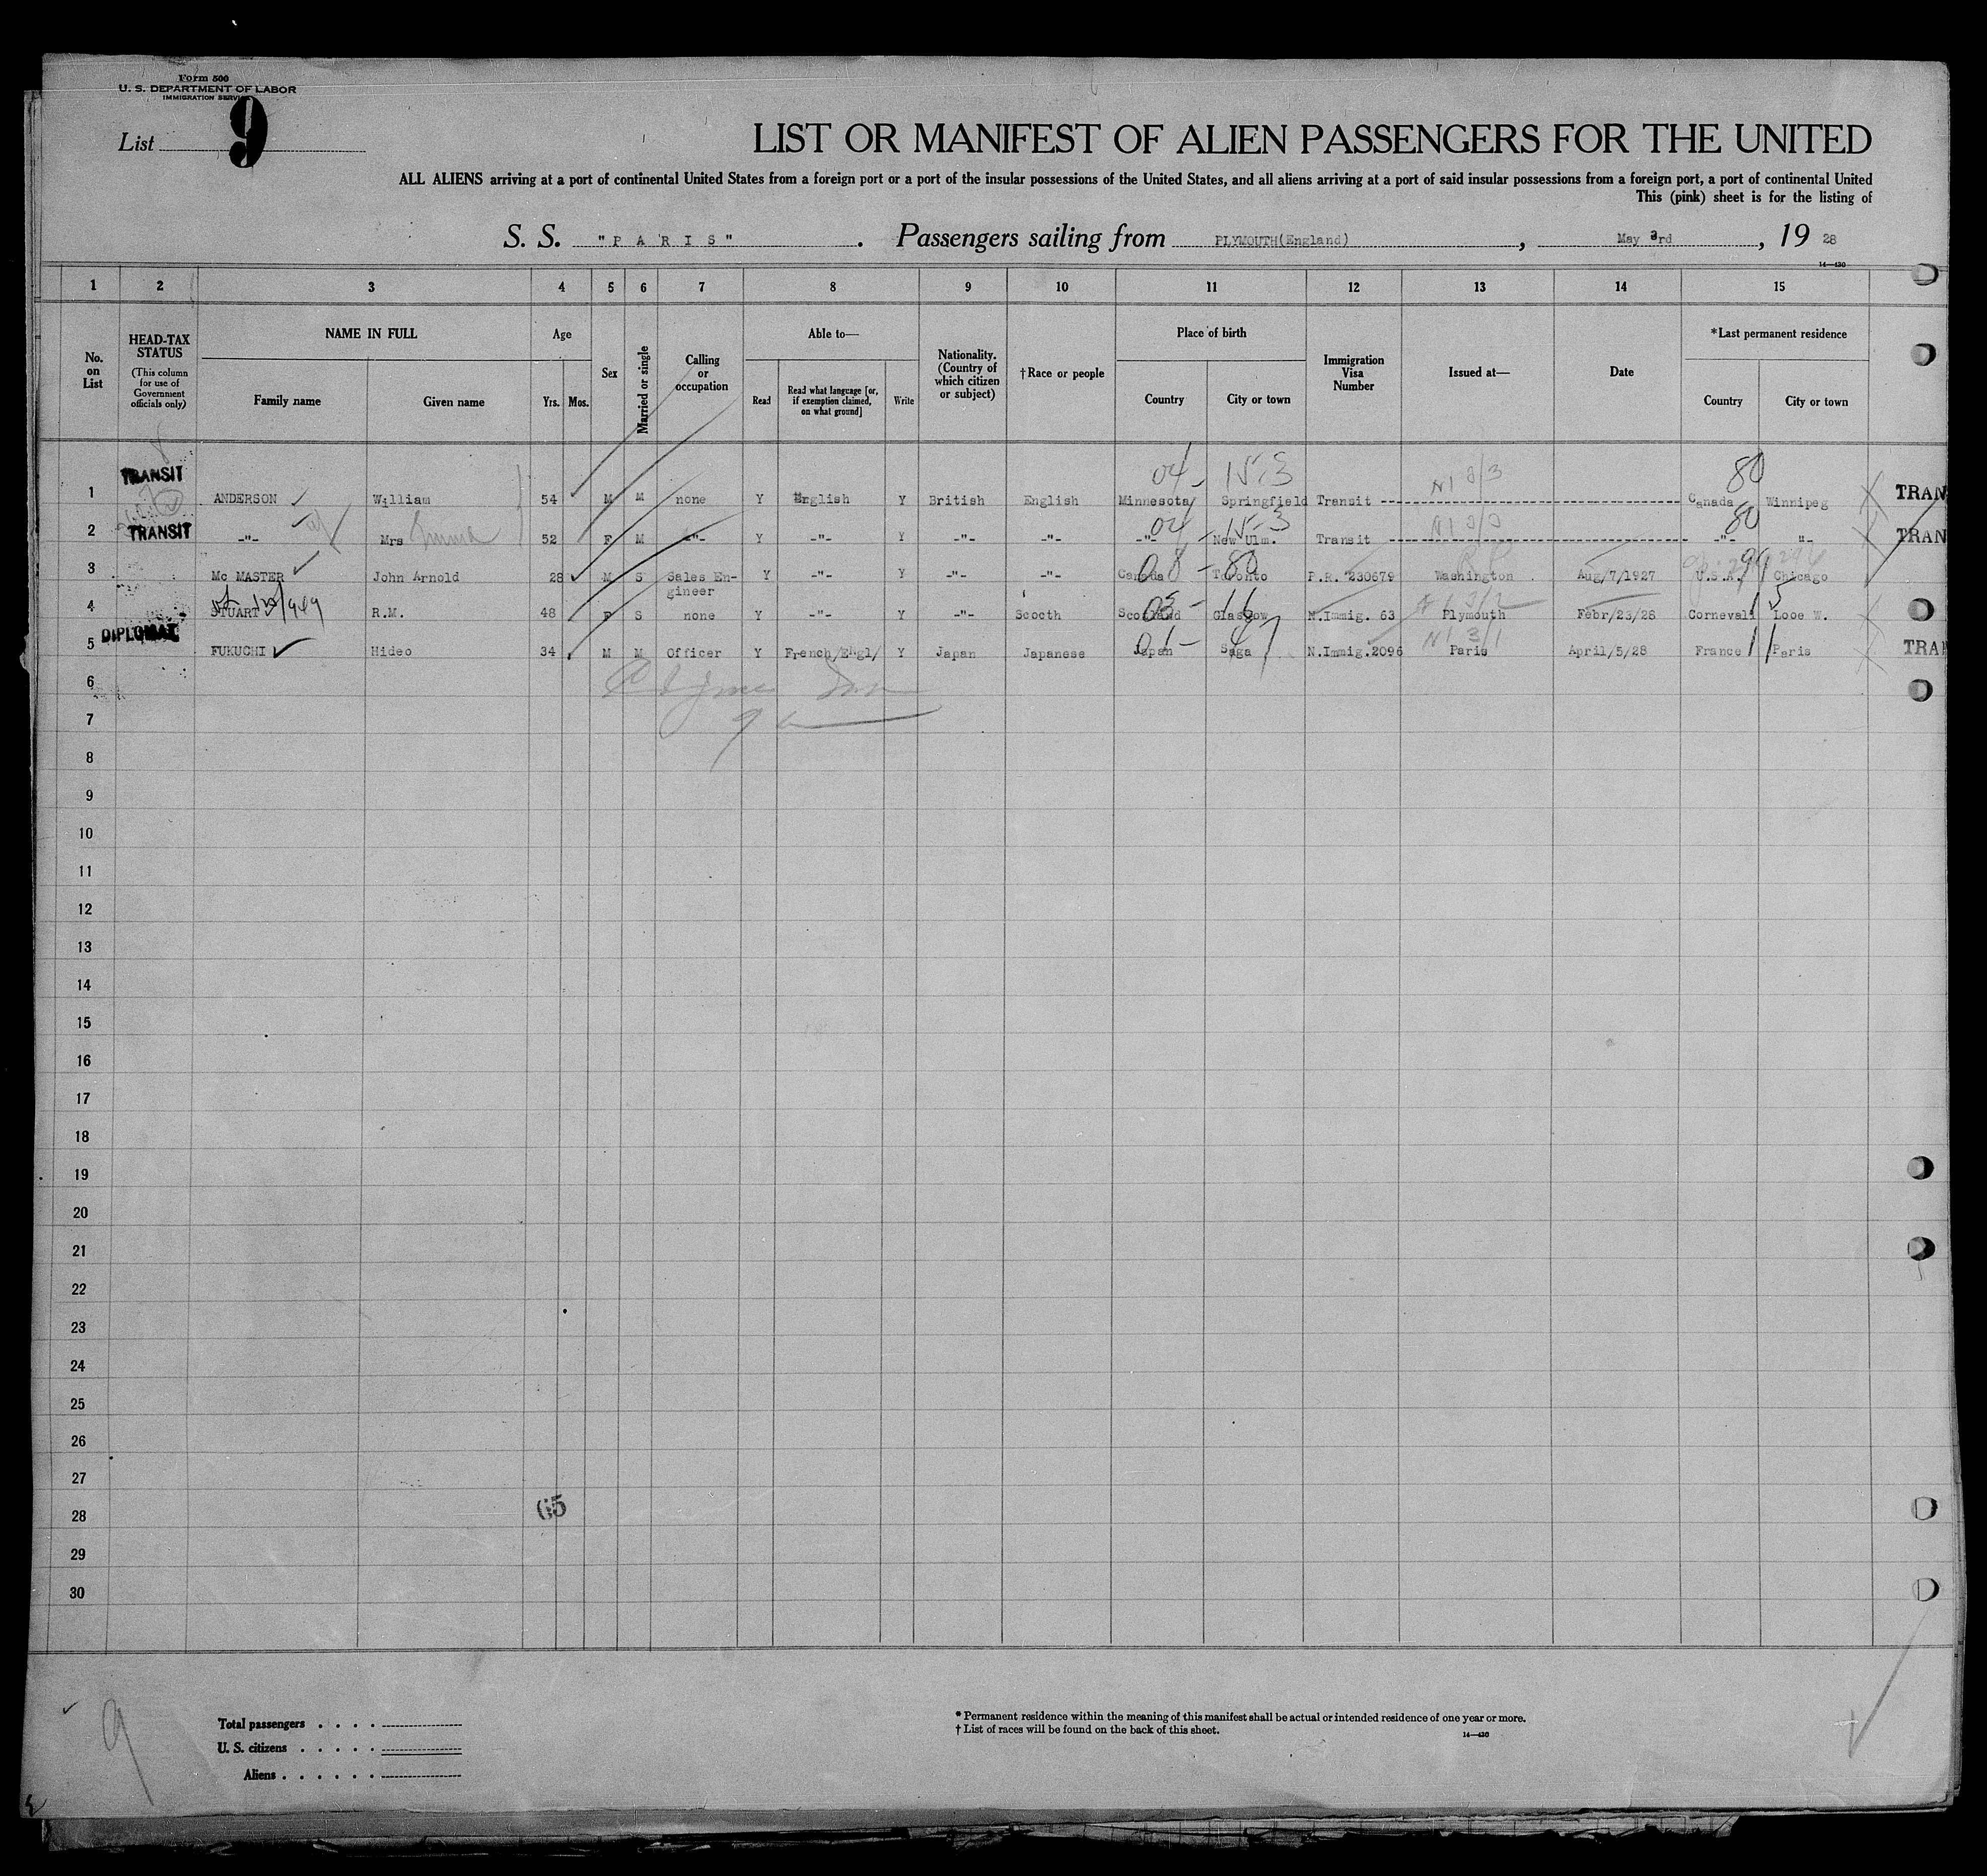 Form 500
U. S. DEPARTMENT OF LABOR
IMMIGRATION SERVICE
List 9
LIST OR MANIFEST OF ALIEN PASSENGERS FOR THE UNITED
ALL ALIENS arriving at a port of continental United States from a foreign port or a port of the insular possessions of the United States, and all aliens arriving at a port of said insular possessions from a foreign port, a port of continental United
This (pink) sheet is for the listing of
S. S. "PARIS" . Passengers sailing from PLYMOUTH(England) , May 3rd , 19 28
14—430
1 2 3 4 5 6 7 8 9 10 11 12 13 14 15
No. on List
HEAD-TAX STATUS (This column for use of Government officials only)
NAME IN FULL
Family name Given name
Age
Yrs. Mos.
Sex
Married or single
Calling or occupation
Able to—
Read Read what language [or, if exemption claimed, on what ground] Write
Nationality. (Country of which citizen or subject)
†Race or people
Place of birth
Country City or town
Immigration Visa Number
Issued at—
Date
*Last permanent residence
Country City or town
04- 15-3 N1 3/3 80
1 TRANSIT ANDERSON William 54 M M none Y English Y British English Minnesota Springfield Transit Canada Winnipeg TRAN
04 - 15-3 80
2 TRANSIT -"- Mrs Emma 52 F M -"- Y -"- Y -"- -"- -"- New Ulm. Transit -"- "- TRAN
08 - 80 99
3 Mc MASTER John Arnold 28 M S Sales Engineer Y -"- Y -"- -"- Canada Toronto P.R. 230679 Washington Aug/7/1927 U.S.A. Chicago
03 - 11 N1 3/2 15
4 STUART R.M. 48 F S none Y -"- Y -"- Scocth Scotland Glasgow N.Immig. 63 Plymouth Febr/23/28 Cornevall Looe W.
01 - 47 N1 3/1 11
5 DIPLOMAT FUKUCHI Hideo 34 M M Officer Y French/Engl/ Y Japan Japanese Japan Saga N.Immig.2096 Paris April/5/28 France Paris TRAN
6
7
8
9
10
11
12
13
14
15
16
17
18
19
20
21
22
23
24
25
26
27
28 65
29
30
9
Total passengers . . . .
U. S. citizens . . . . .
Aliens . . . . . .
* Permanent residence within the meaning of this manifest shall be actual or intended residence of one year or more.
† List of races will be found on the back of this sheet.
14—430